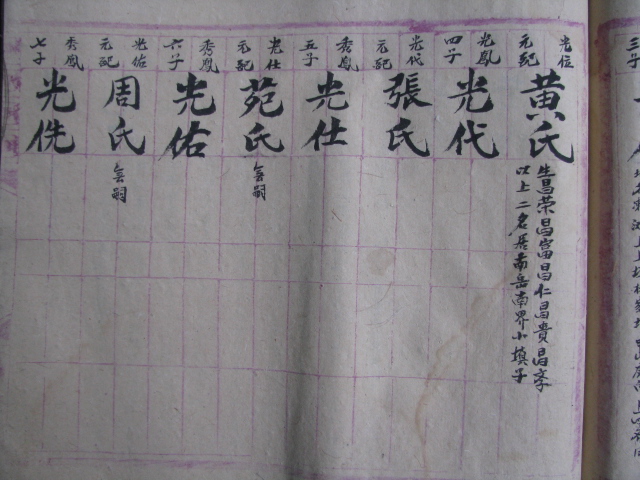 光位
元配
黄氏
生昌荣昌富昌仁昌貴昌字
以上二名居南岳南界小填子
光鳳
四子
光代
光代
元配
張氏
秀鳳
五子
光仕
光仕
元配
苑氏
無嗣
秀鳳
六子
光佑
光佑
元配
周氏
無嗣
秀鳳
七子
光侁